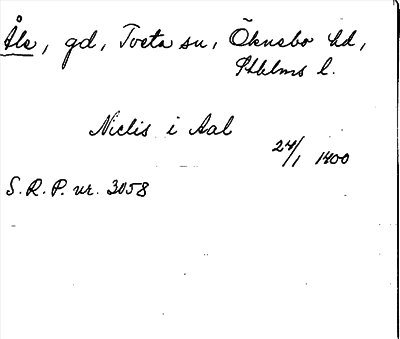 Åla, gd, Tveta sn, Öknebo hd,
Sthlms l.
Niclis i Aal
24/1 1400
S.R.P. nr. 3058